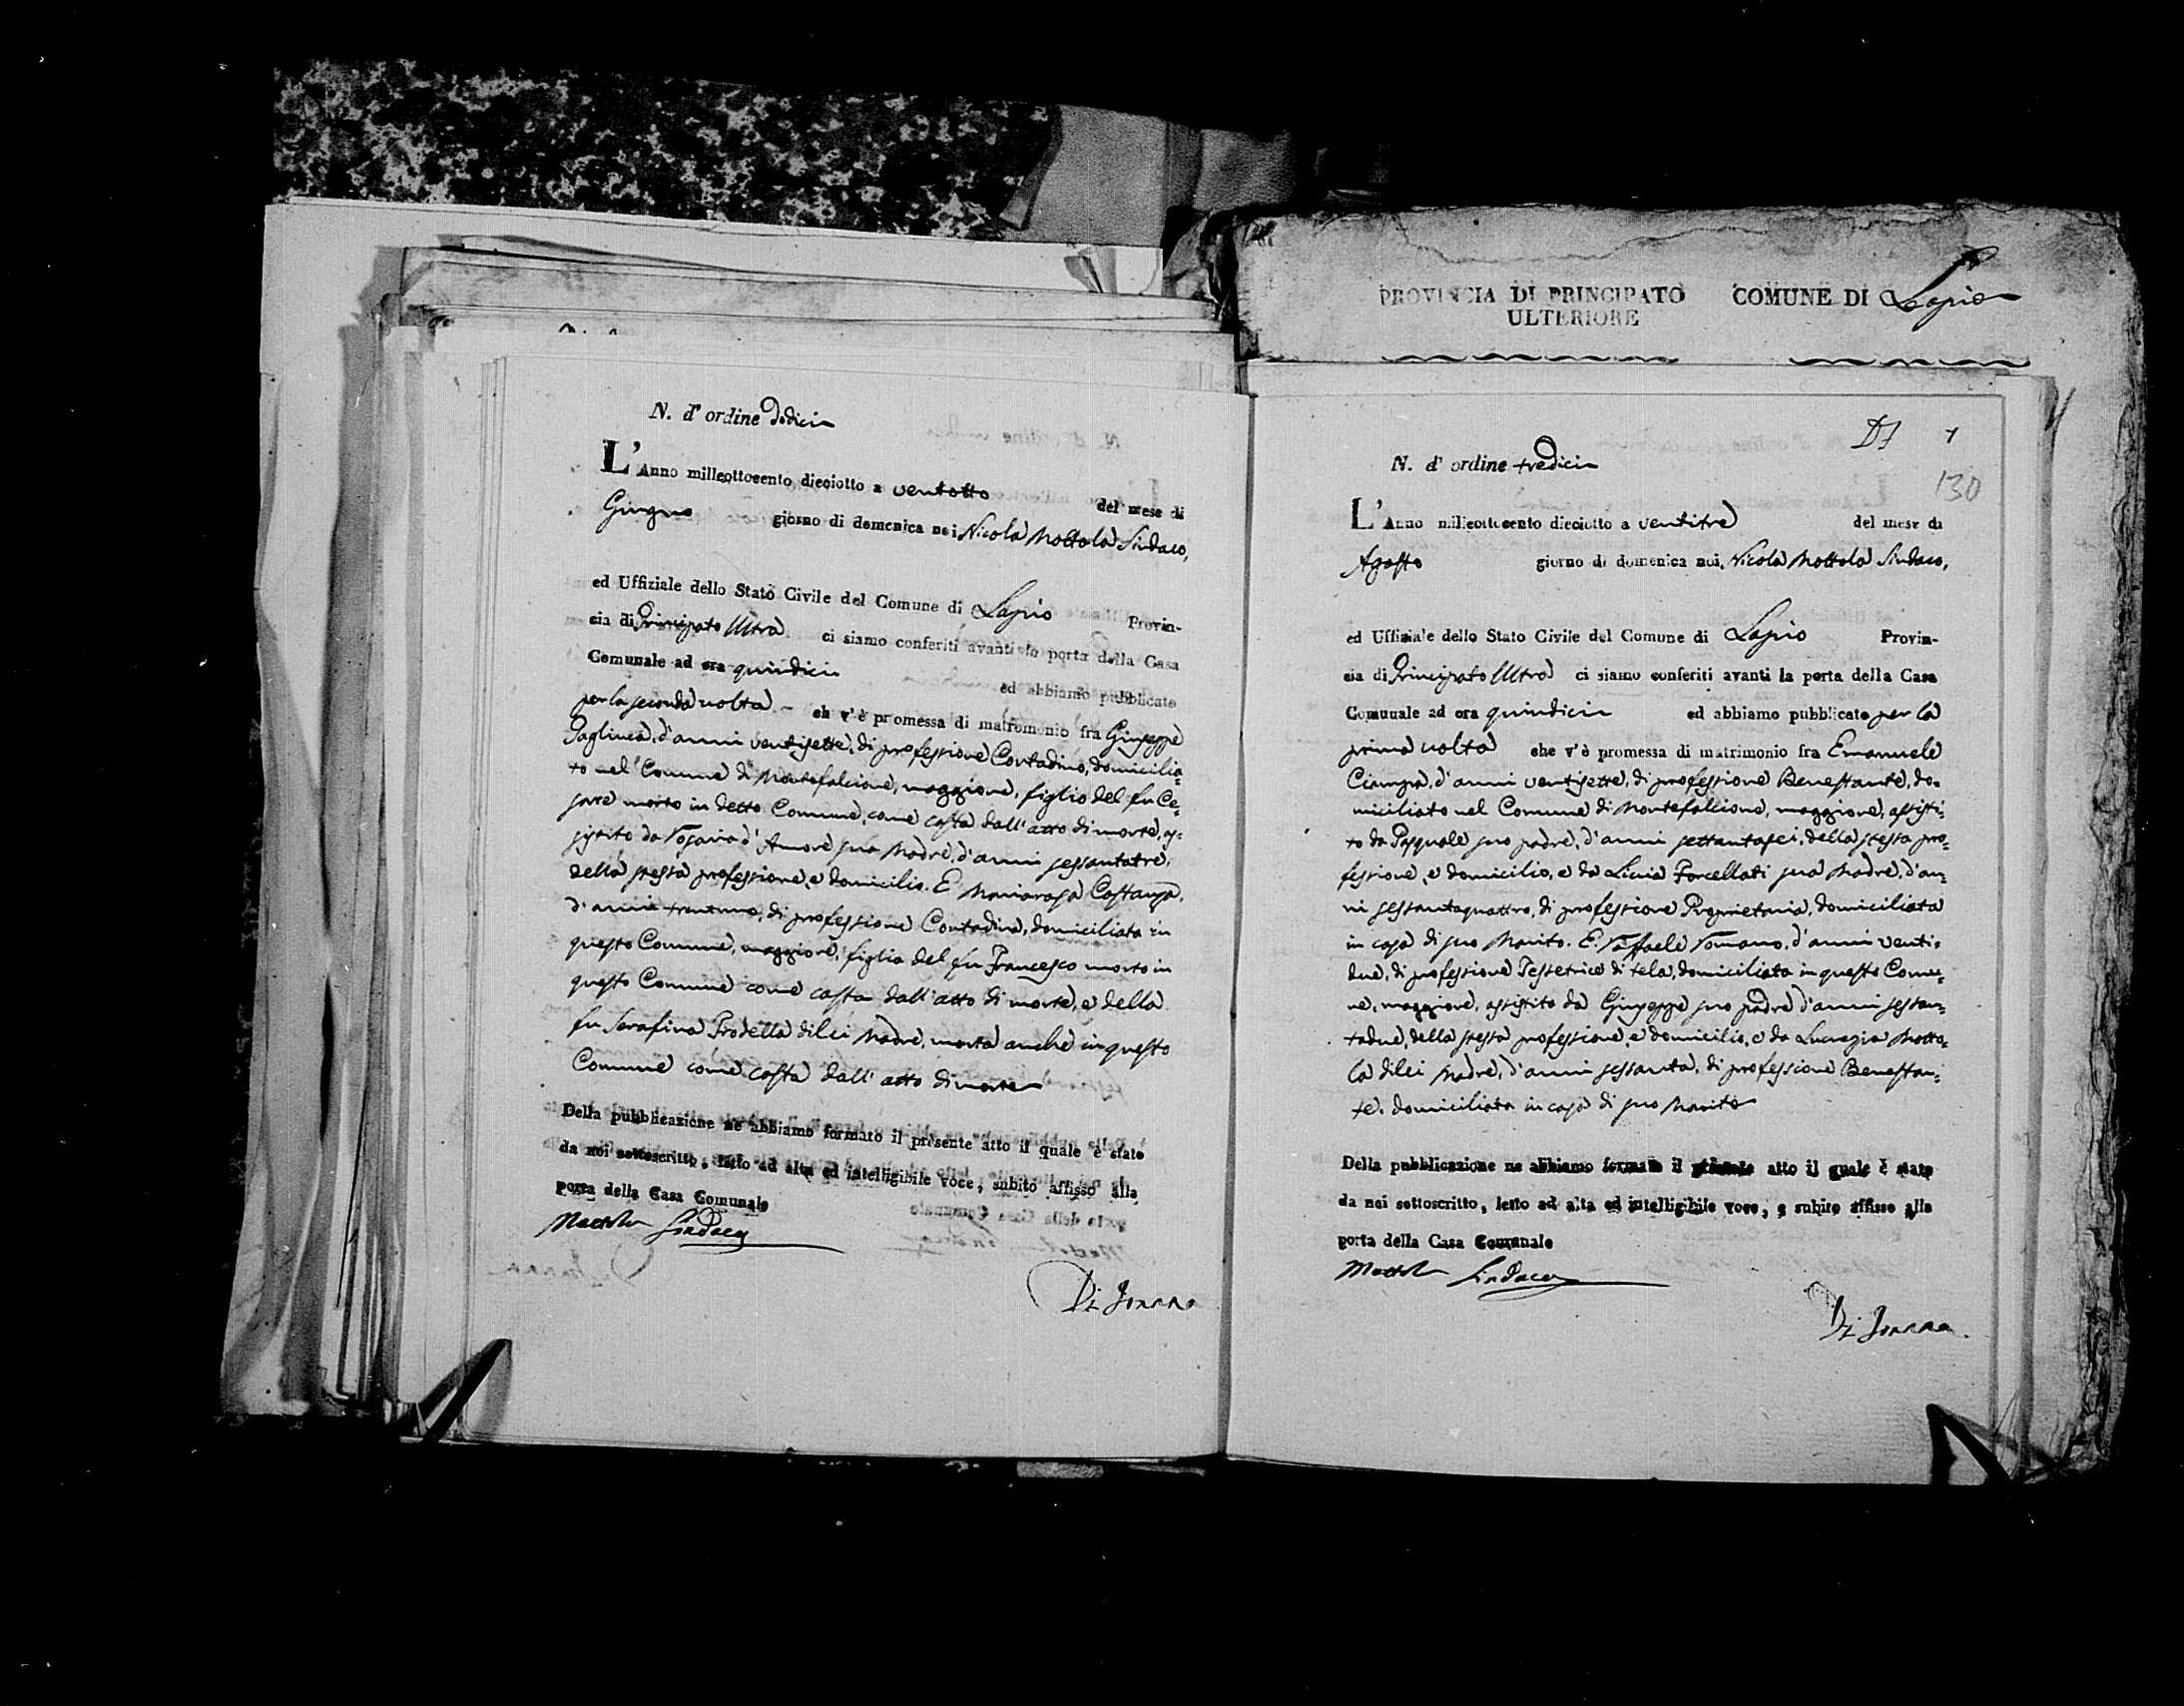 N. d' ordine dodici
L'Anno milleottocento dieciotto a ventotto del mese di
Giugno giorno di domenica noi Nicola Mottola Sindaco,
ed Uffiziale dello Stato Civile del Comune di Lapio Provin-
cia di Principato Ultra ci siamo conferiti avanti la porta della Casa
Comunale ad ora quindici ed abbiamo pubblicato
per la seconda volta - che v'è promessa di matrimonio fra Giuseppe
d'anni ventisette, di professione Contadino, domicilia-
to nel Comune di Montefalcione, maggiore, figlio del fu Ce-
sare morto in detto Comune, come costa dall'atto di morte, as-
sistito da Rosaria d'Amore sua Madre, d'anni sessantatre,
della stessa professione, e domicilio. E Mariarosa Costanza,
d'anni trentuno, di professione Contadina, domiciliata in
questo Comune, maggiore, figlia del fu Francesco morto in
questo Comune come costa dall'atto di morte, e della
fu Serafina Prodella di lei Madre, morta anche in questo
Comune come costa dall'atto di morte
Della pubblicazione ne abbiamo formato il presente atto il quale è stato
da noi sottoscritto, letto ad alta ed intelligibile voce, subito affisso alla
porta della Casa Comunale
Mottola Sindaco
PROVINCIA DI PRINCIPATO ULTERIORE
COMUNE DI Lapio
130
N. d' ordine tredici
L'Anno milleottocento dieciotto a ventitre del mese di
Agosto giorno di domenica noi, Nicola Mottola Sindaco,
ed Uffiziale dello Stato Civile del Comune di Lapio Provin-
cia di Principato Ultra ci siamo conferiti avanti la porta della Casa
Comunale ad ora quindici ed abbiamo pubblicato per la
prima volta che v'è promessa di matrimonio fra Emanuele
Ciampa, d'anni ventisette, di professione Benestante, do-
miciliato nel Comune di Montefalcione, maggiore, assisti-
to da Pasquale suo padre, d'anni settantasei, della stessa pro-
fessione, e domicilio, e da Livia Forcellati sua Madre, d'an-
ni sessantaquattro, di professione Proprietaria, domiciliata
in casa di suo Marito. E Raffaele Romano, d'anni venti-
due, di professione Tessetrice di tela, domiciliata in questo Comu-
ne, maggiore, assistito da Giuseppe suo padre d'anni sessan-
tadue, della stessa professione, e domicilio, e da Lucrezia Motto-
la di lei Madre, d'anni sessanta, di professione Benestan-
te, domiciliata in casa di suo Marito
Della pubblicazione ne abbiamo formato il presente atto il quale è stato
da noi sottoscritto, letto ad alta ed intelligibile voce, e subito affisso alla
porta della Casa Comunale
Mottola Sindaco